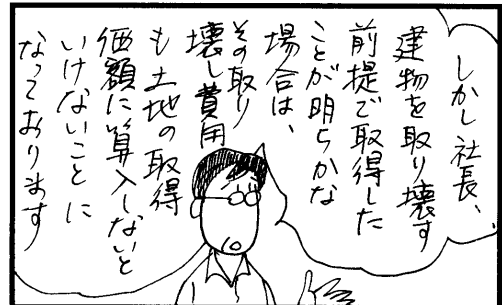 しかし社長、
建物を取り壊す
前提で取得した
ことが明らかな
場合は、
その取り
壊し費用
も土地の取得
価額に算入しないと
いけないことに
なっております